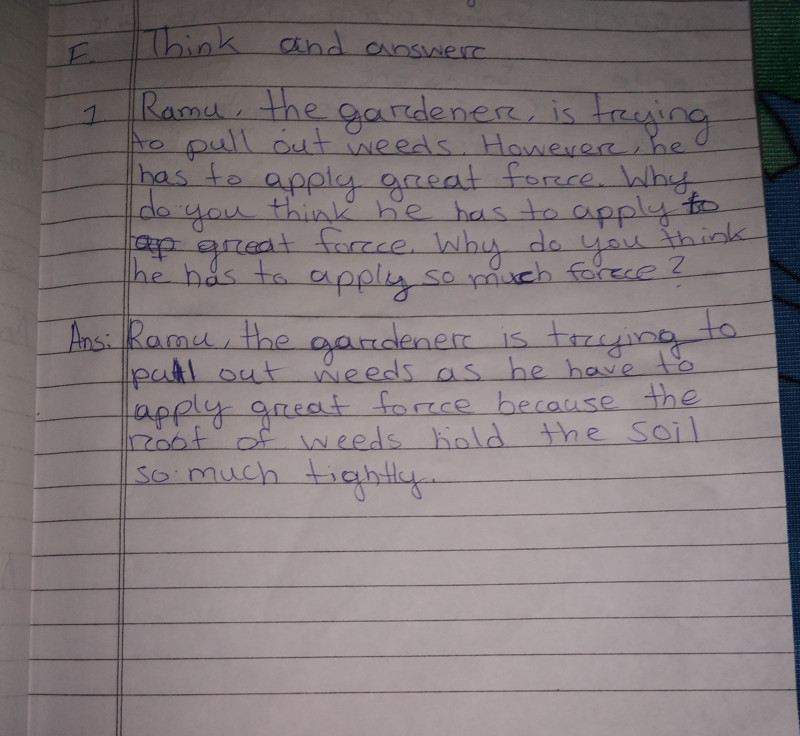 E. Think and answer
1 Ramu, the gardener, is trying
to pull out weeds. However, he
has to apply great force. Why
do you think he has to apply to
ap great force. Why do you think
he has to apply so much force?
Ans: Ramu, the gardener is trying to
pull out weeds as he have to
apply great force because the
root of weeds hold the soil
so much tightly.